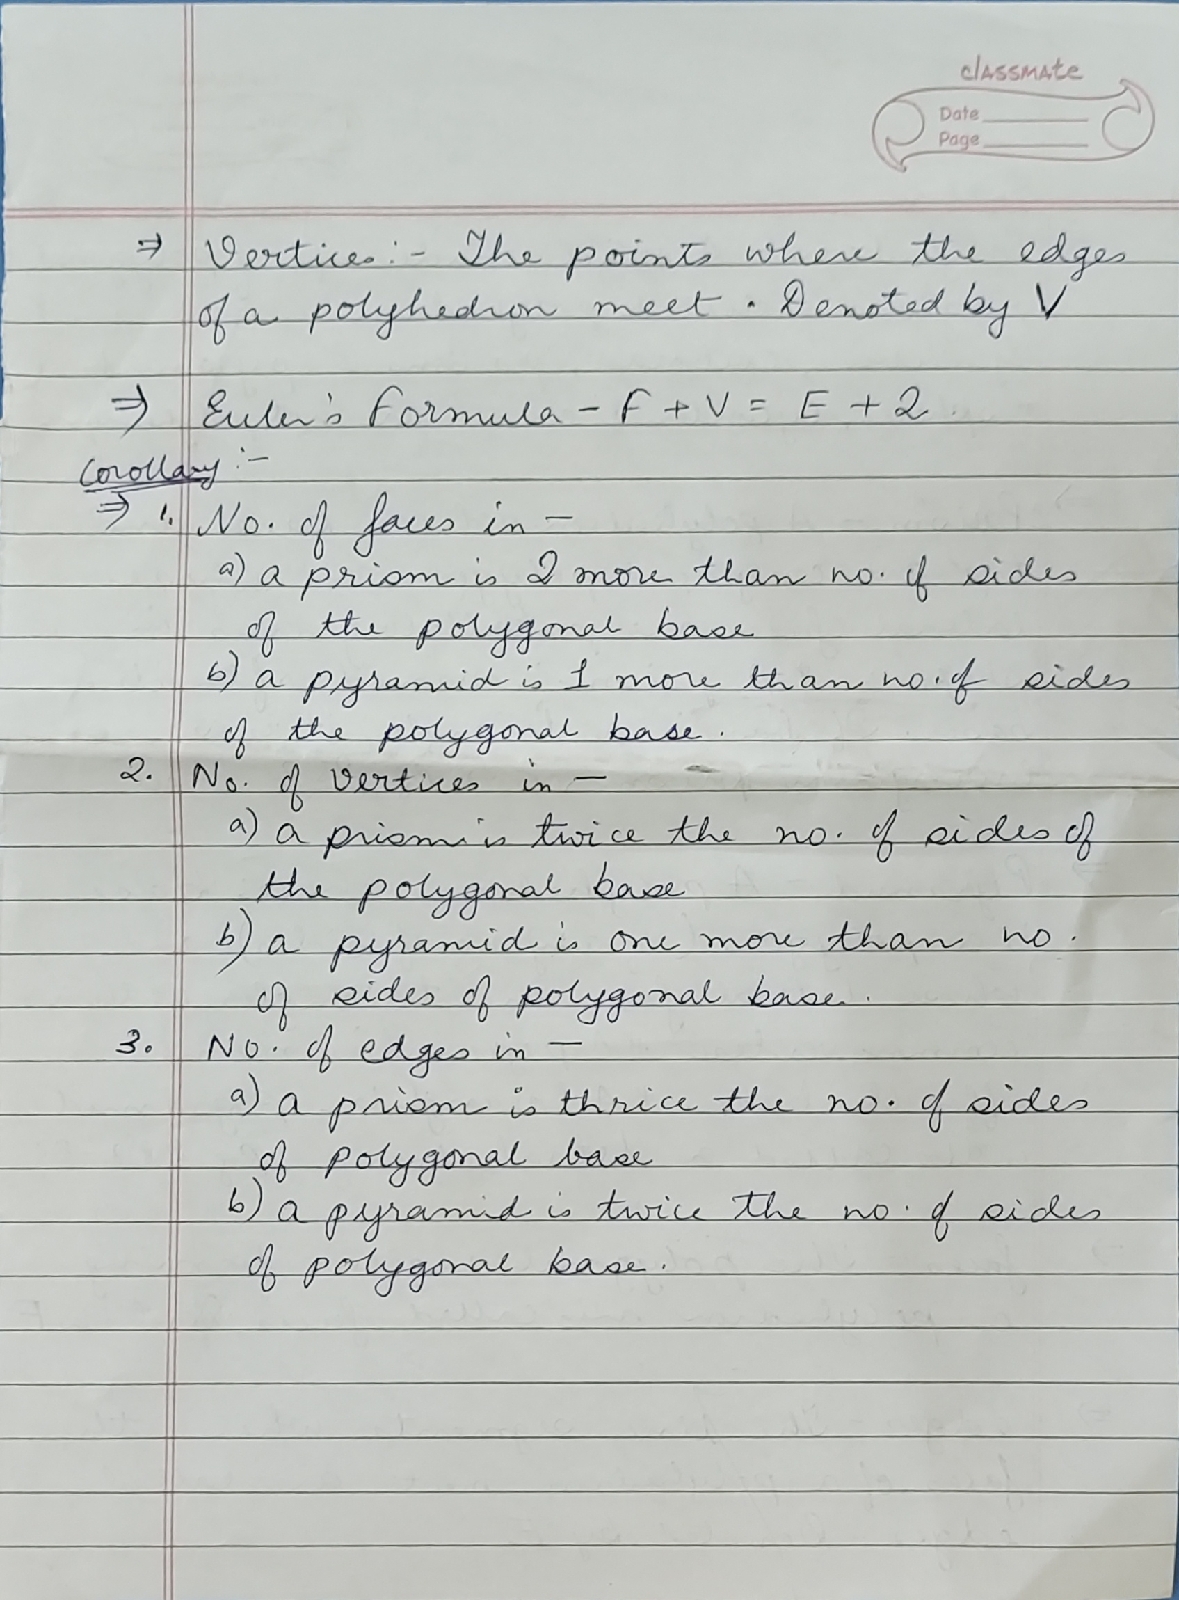 classmate
Date
Page
⇒ Vertices :- The points where the edges
of a polyhedron meet. Denoted by V
⇒ Euler's Formula - F + V = E + 2.
Corollary :-
⇒ 1. No. of faces in -
a) a prism is 2 more than no. of sides
of the polygonal base
b) a pyramid is 1 more than no. of sides
of the polygonal base.
2. No. of vertices in -
a) a prism is twice the no. of sides of
the polygonal base
b) a pyramid is one more than no.
of sides of polygonal base.
3. No. of edges in -
a) a prism is thrice the no. of sides
of polygonal base
b) a pyramid is twice the no. of sides
of polygonal base.